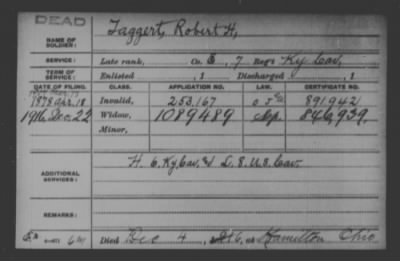 DEAD
NAME OF SOLDIER: Taggert, Robert H,
SERVICE: Late rank, Co. E, 7 Reg't Ky Cav,
TERM OF SERVICE: Enlisted , 1 Discharged , 1
DATE OF FILING. CLASS. APPLICATION NO. LAW. CERTIFICATE NO.
1878 Apr. 18 Invalid, 253,167 891942
1916 Dec 22 Widow, 1089489 846,939.
Minor,
ADDITIONAL SERVICES: H. 6. Ky. Cav. & L. 8. U.S. Cav.
REMARKS:
Died Dec 4, at Hamilton Ohio